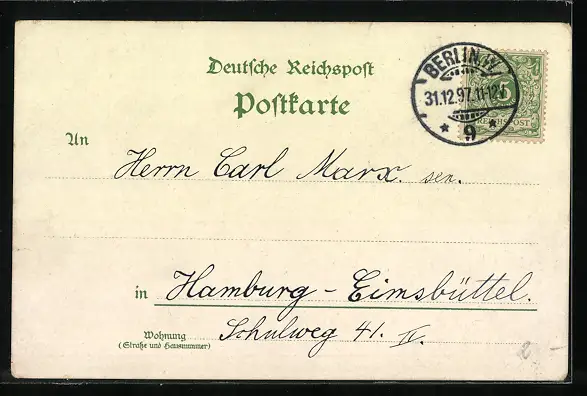 Deutsche Reichspost
Postkarte
BERLIN, W.
31.12.97.11-12V
* 9 *
5
REICHSPOST
An
Herrn Carl Marx. sen.
in Hamburg-Eimsbüttel.
Wohnung
(Straße und Hausnummer)
Schulweg 41. II.